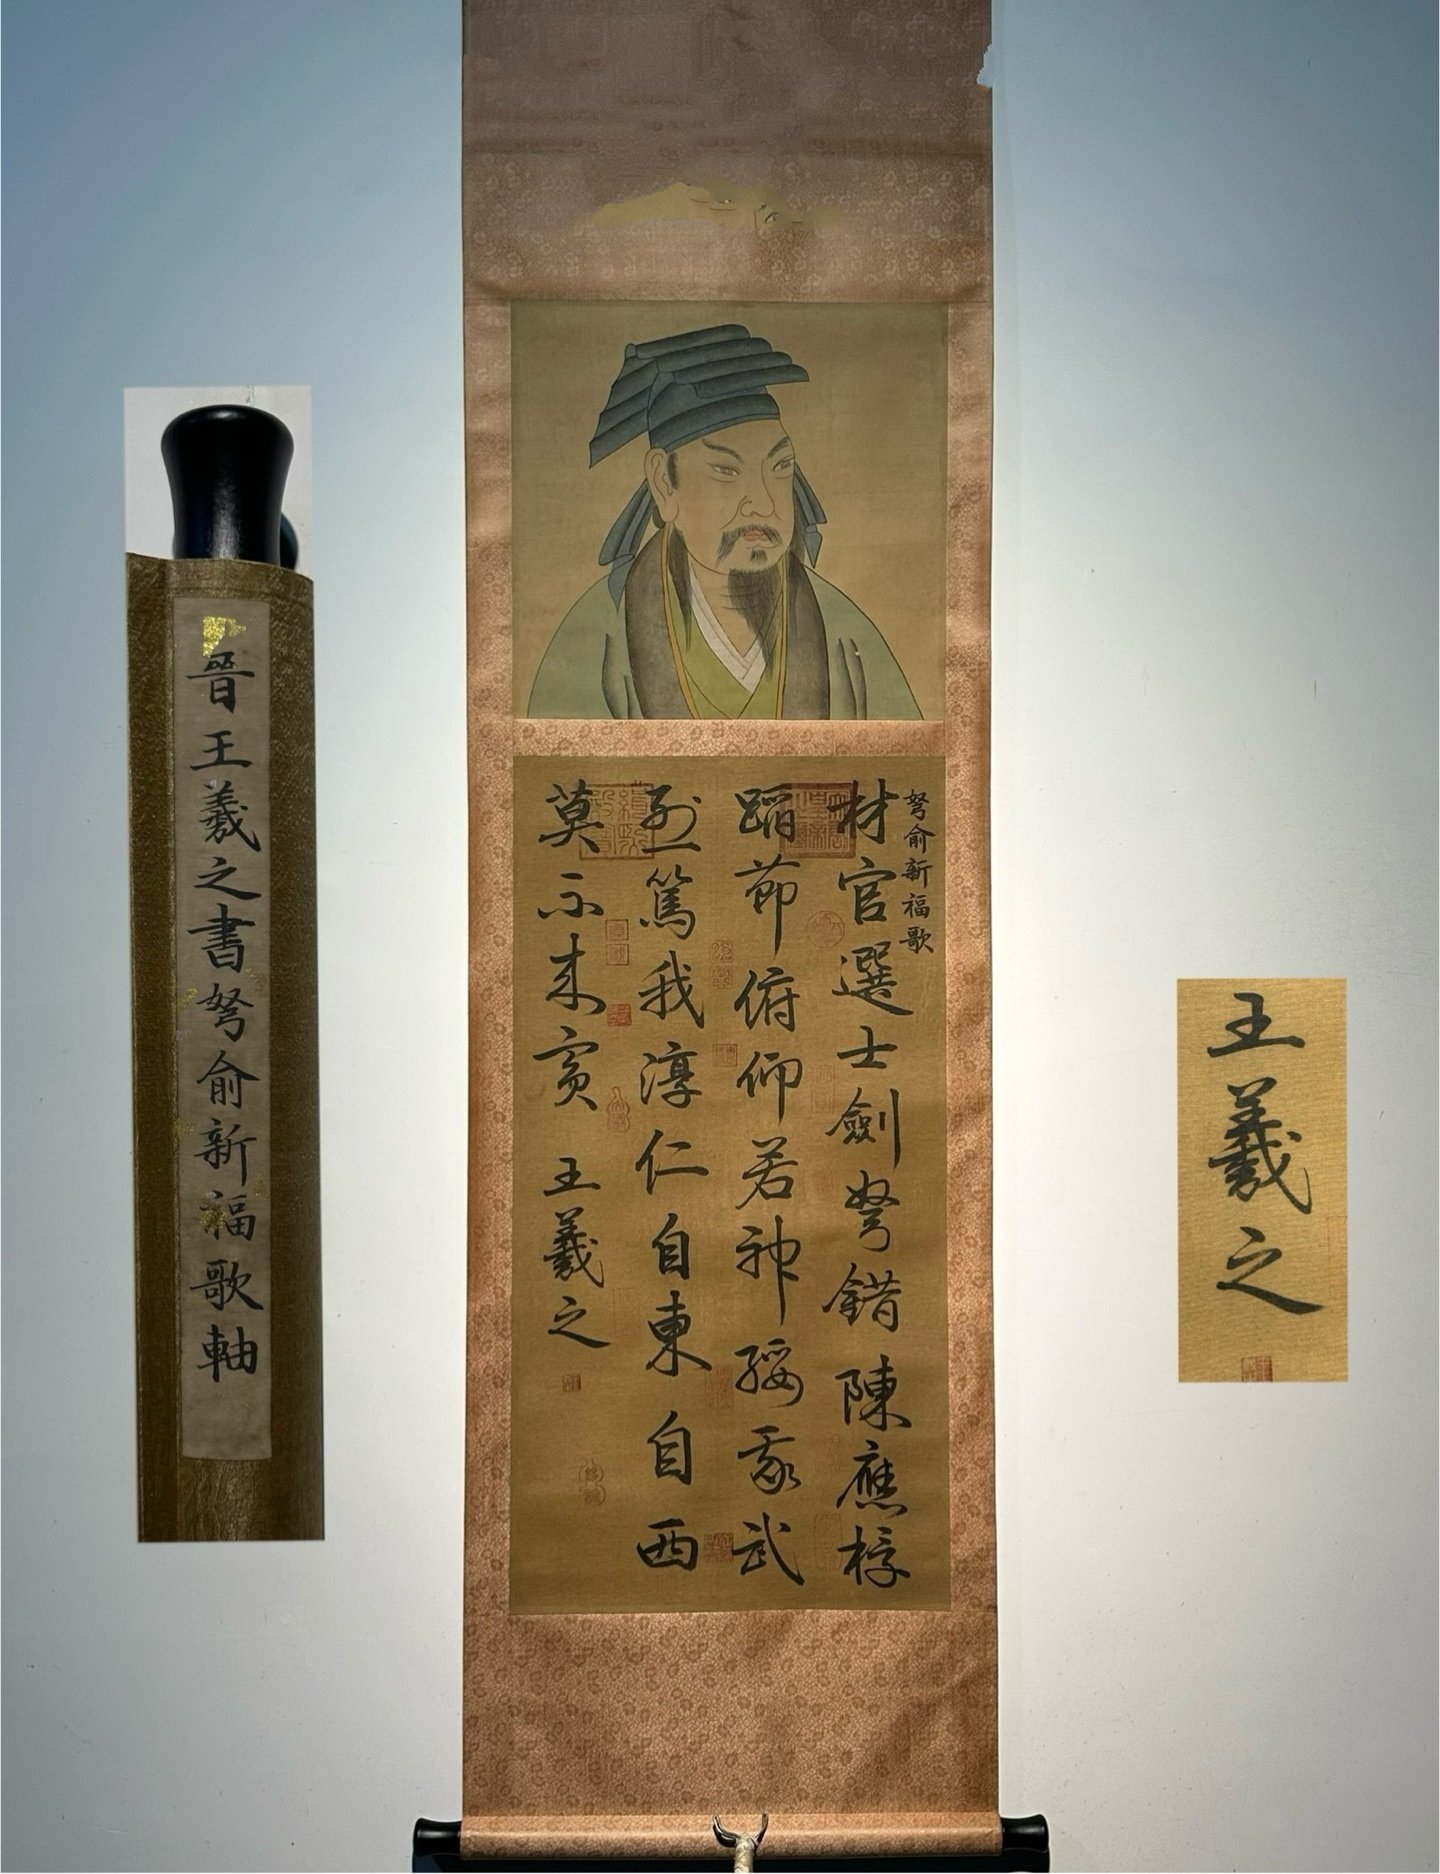 弩俞新福歌
材官選士劍弩錯陳應桴
蹈節俯仰若神綏我武
烈篤我淳仁自東自西
莫不来賓 王羲之
晉王羲之書弩俞新福歌軸
王羲之